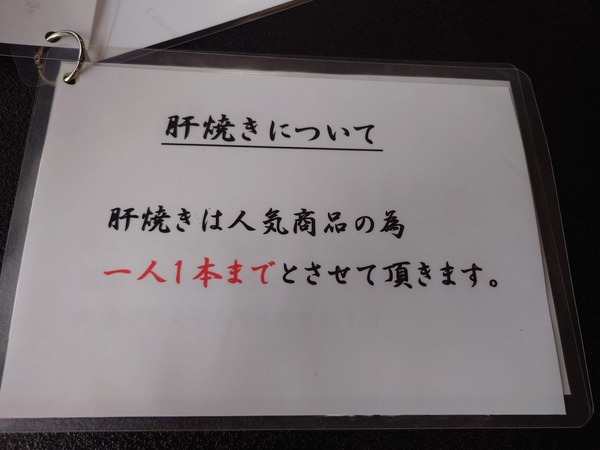 肝焼きについて
肝焼きは人気商品の為
一人1本までとさせて頂きます。